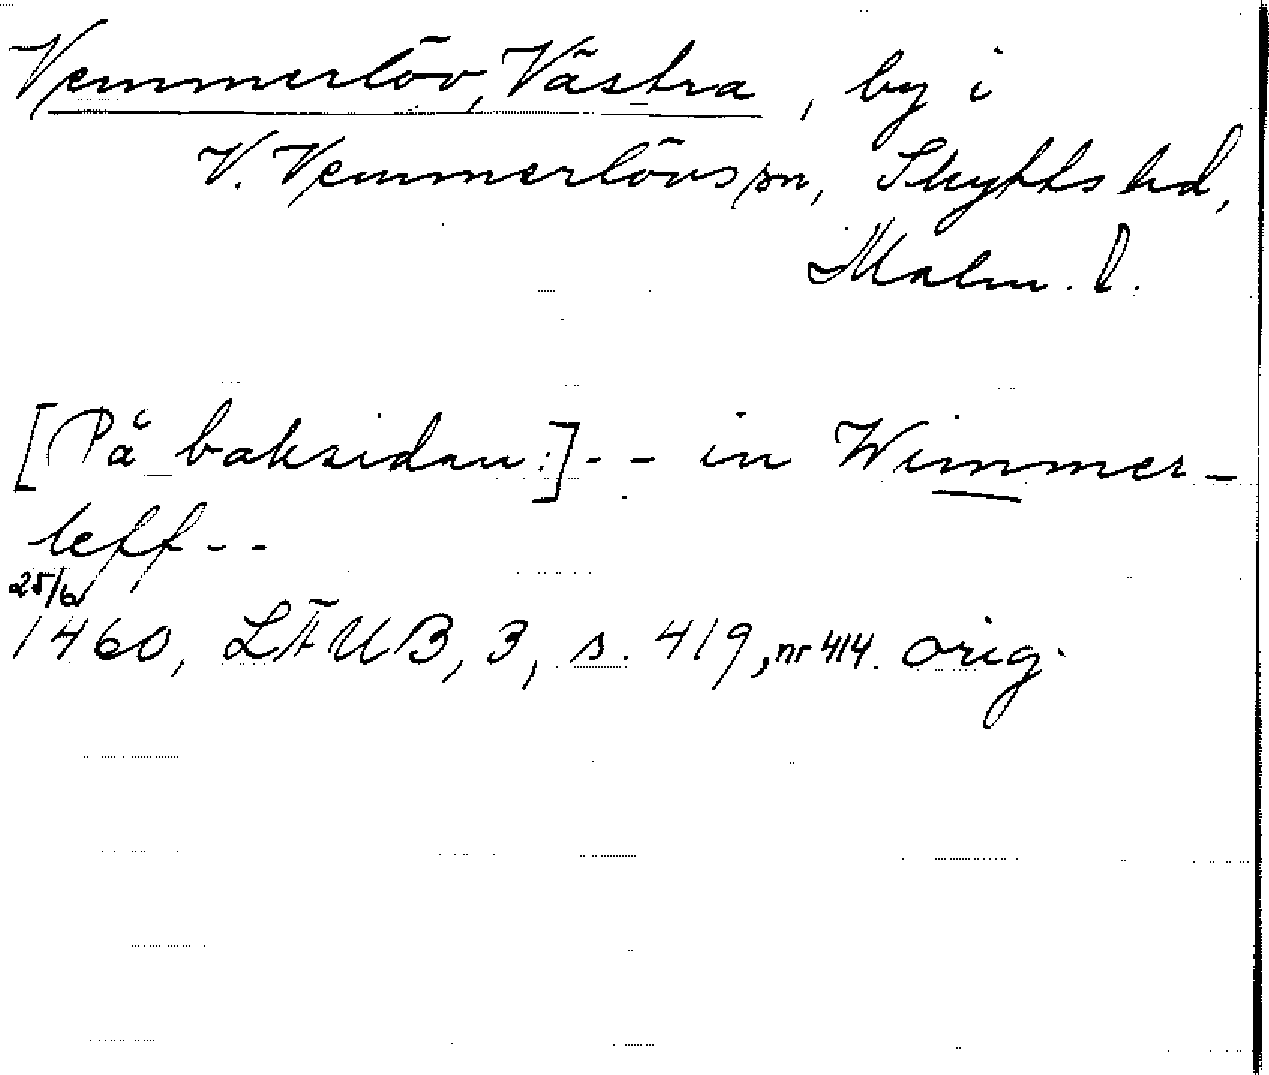 Vemmerlöv, Västra, by i
V. Vemmerlövs sn, Skytts hd,
Malm. l.
[På baksidan:] - - in Wimmer-
leff - -
25/6
1460, LÄUB, 3, s. 419, nr 414. orig.